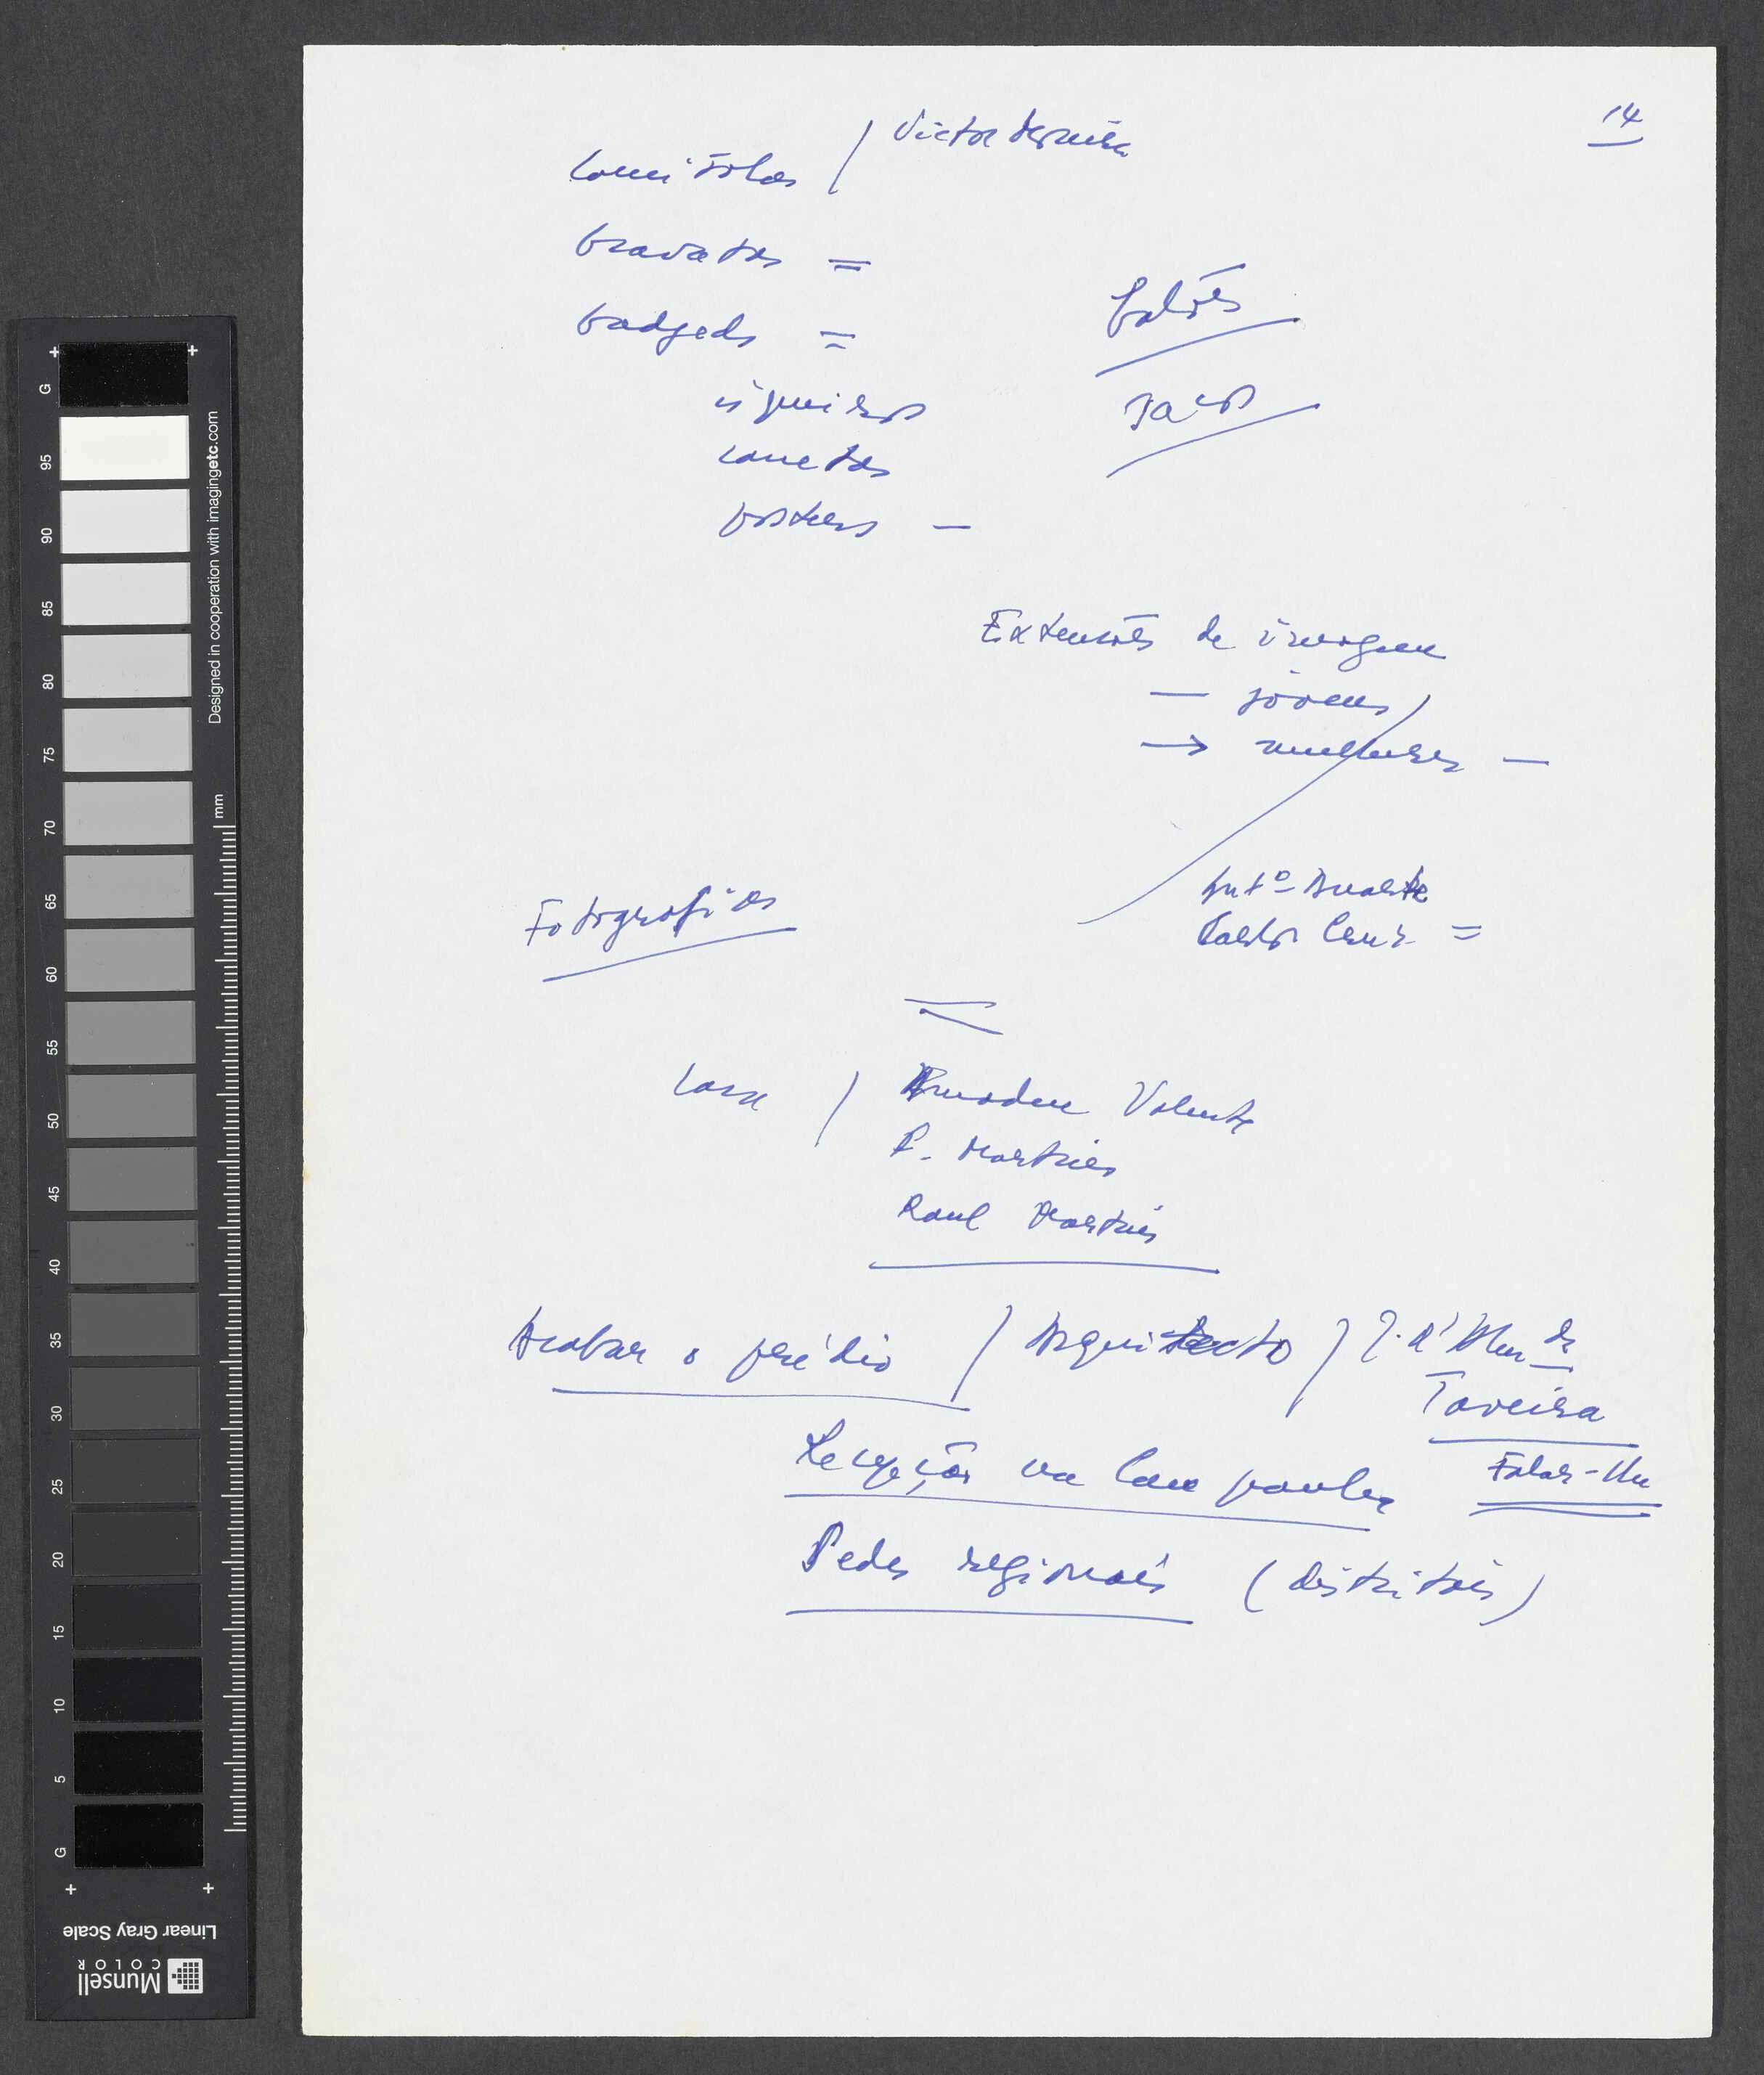 14
camisolas / Victor
gravatas =
badgeds =
isqueiros
canetas
posters —
balões
sacos
Extensões de imagem
— jovens
→ mulheres —
Fotografias
Antº Duarte
Carlos Cruz =
Casa / Amadeu Valente
P. Martins
Raul Martins
Acabar o prédio / Arquitecto /
Taveira
Falar-lhe
Recepção na Campanha
Sedes regionais (distritais)
Designed in cooperation with imagingetc.com
mm
G
95
90
85
80
75
70
65
60
55
50
45
40
35
30
25
20
15
10
5
G
Linear Gray Scale
Munsell
COLOR